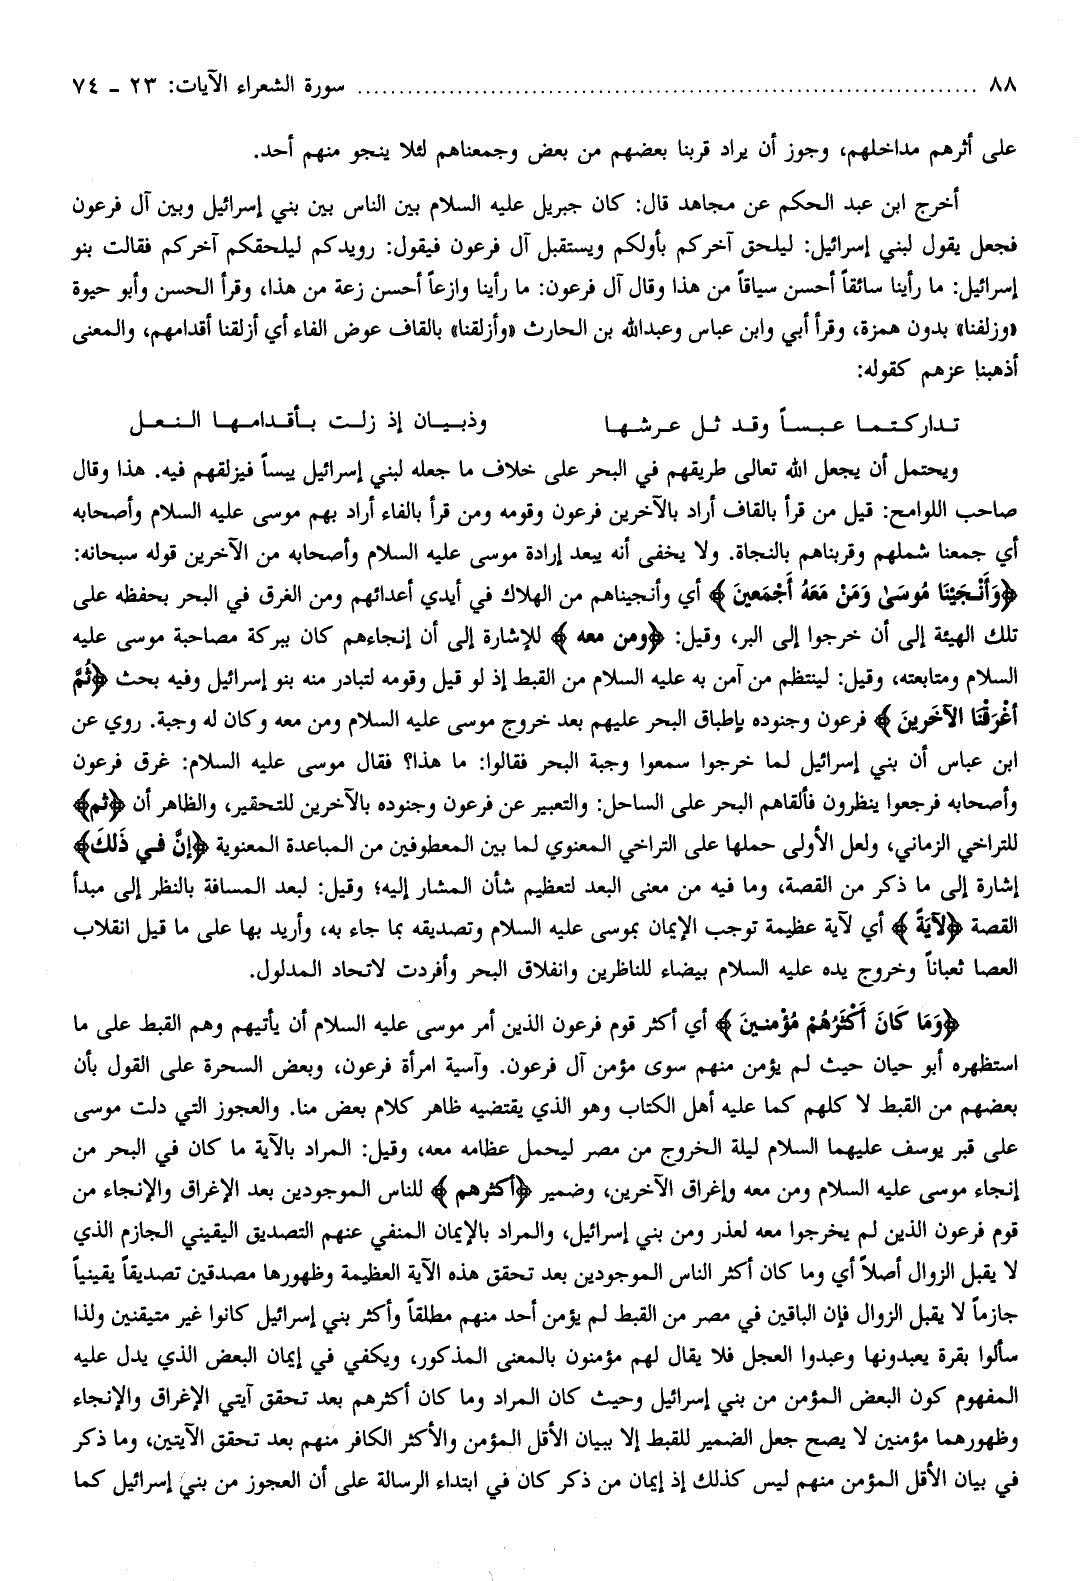 ٨٨ ........................................................................... سورة الشعراء الآيات: ٢٣ ـ ٧٤
على أثرهم مداخلهم، وجوز أن يراد قربنا بعضهم من بعض وجمعناهم لئلا ينجو منهم أحد.
أخرج ابن عبد الحكم عن مجاهد قال: كان جبريل عليه السلام بين الناس بين بني إسرائيل وبين آل فرعون
فجعل يقول لبني إسرائيل: ليلحق آخركم بأولكم ويستقبل آل فرعون فيقول: رويدكم ليلحقكم آخركم فقالت بنو
إسرائيل: ما رأينا سائقاً أحسن سياقاً من هذا وقال آل فرعون: ما رأينا وازعاً أحسن زعة من هذا، وقرأ الحسن وأبو حيوة
«وزلفنا» بدون همزة، وقرأ أبي وابن عباس وعبدالله بن الحارث «وأزلقنا» بالقاف عوض الفاء أي أزلقنا أقدامهم، والمعنى
أذهبنا عزهم كقوله:
تداركتما عبساً وقد ثل عرشها وذبيان إذ زلت بأقدامها النعل
ويحتمل أن يجعل الله تعالى طريقهم في البحر على خلاف ما جعله لبني إسرائيل يبساً فيزلقهم فيه. هذا وقال
صاحب اللوامح: قيل من قرأ بالقاف أراد بالآخرين فرعون وقومه ومن قرأ بالفاء أراد بهم موسى عليه السلام وأصحابه
أي جمعنا شملهم وقربناهم بالنجاة. ولا يخفى أنه يبعد إرادة موسى عليه السلام وأصحابه من الآخرين قوله سبحانه:
﴿وَأَنْجَيْنَا مُوسَىٰ وَمَنْ مَعَهُ أَجْمَعينَ﴾ أي وأنجيناهم من الهلاك في أيدي أعدائهم ومن الغرق في البحر بحفظه على
تلك الهيئة إلى أن خرجوا إلى البر، وقيل: ﴿ومن معه﴾ للإشارة إلى أن إنجاءهم كان ببركة مصاحبة موسى عليه
السلام ومتابعته، وقيل: لينتظم من آمن به عليه السلام من القبط إذ لو قيل وقومه لتبادر منه بنو إسرائيل وفيه بحث ﴿ثُمَّ
أَغْرَقْنَا الآخَرينَ﴾ فرعون وجنوده بإطباق البحر عليهم بعد خروج موسى عليه السلام ومن معه وكان له وجبة. روي عن
ابن عباس أن بني إسرائيل لما خرجوا سمعوا وجبة البحر فقالوا: ما هذا؟ فقال موسى عليه السلام: غرق فرعون
وأصحابه فرجعوا ينظرون فألقاهم البحر على الساحل: والتعبير عن فرعون وجنوده بالآخرين للتحقير، والظاهر أن ﴿ثم﴾
للتراخي الزماني، ولعل الأولى حملها على التراخي المعنوي لما بين المعطوفين من المباعدة المعنوية ﴿إنَّ في ذَلكَ﴾
إشارة إلى ما ذكر من القصة، وما فيه من معنى البعد لتعظيم شأن المشار إليه؛ وقيل: لبعد المسافة بالنظر إلى مبدأ
القصة ﴿لآيَةً﴾ أي لآية عظيمة توجب الإيمان بموسى عليه السلام وتصديقه بما جاء به، وأريد بها على ما قيل انقلاب
العصا ثعباناً وخروج يده عليه السلام بيضاء للناظرين وانفلاق البحر وأفردت لاتحاد المدلول.
﴿وَمَا كَانَ أَكْثَرُهُمْ مُؤْمنينَ﴾ أي أكثر قوم فرعون الذين أمر موسى عليه السلام أن يأتيهم وهم القبط على ما
استظهره أبو حيان حيث لم يؤمن منهم سوى مؤمن آل فرعون. وآسية امرأة فرعون، وبعض السحرة على القول بأن
بعضهم من القبط لا كلهم كما عليه أهل الكتاب وهو الذي يقتضيه ظاهر كلام بعض منا. والعجوز التي دلت موسى
على قبر يوسف عليهما السلام ليلة الخروج من مصر ليحمل عظامه معه، وقيل: المراد بالآية ما كان في البحر من
إنجاء موسى عليه السلام ومن معه وإغراق الآخرين، وضمير ﴿أكثرهم﴾ للناس الموجودين بعد الإغراق والإنجاء من
قوم فرعون الذين لم يخرجوا معه لعذر ومن بني إسرائيل، والمراد بالإيمان المنفي عنهم التصديق اليقيني الجازم الذي
لا يقبل الزوال أصلاً أي وما كان أكثر الناس الموجودين بعد تحقق هذه الآية العظيمة وظهورها مصدقين تصديقاً يقينياً
جازماً لا يقبل الزوال فإن الباقين في مصر من القبط لم يؤمن أحد منهم مطلقاً وأكثر بني إسرائيل كانوا غير متيقنين ولذا
سألوا بقرة يعبدونها وعبدوا العجل فلا يقال لهم مؤمنون بالمعنى المذكور، ويكفي في إيمان البعض الذي يدل عليه
المفهوم كون البعض المؤمن من بني إسرائيل وحيث كان المراد وما كان أكثرهم بعد تحقق آيتي الإغراق والإنجاء
وظهورهما مؤمنين لا يصح جعل الضمير للقبط إلا ببيان الأقل المؤمن والأكثر الكافر منهم بعد تحقق الآيتين، وما ذكر
في بيان الأقل المؤمن منهم ليس كذلك إذ إيمان من ذكر كان في ابتداء الرسالة على أن العجوز من بني إسرائيل كما